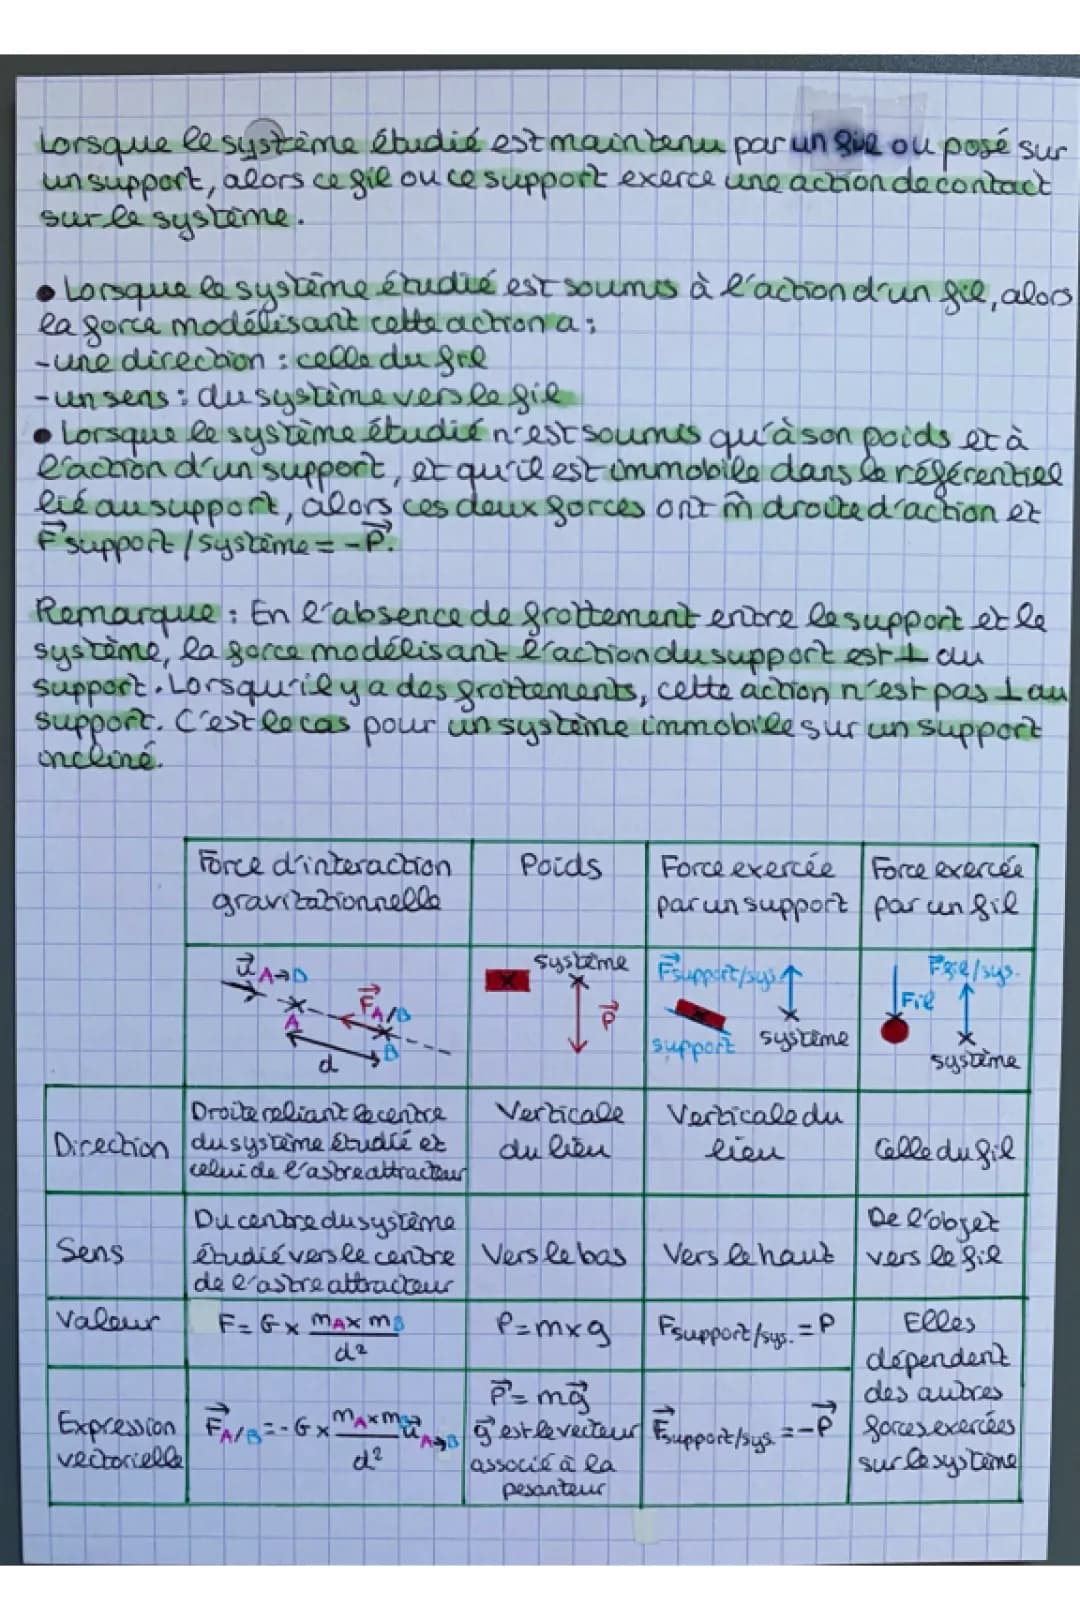 Lorsque le système étudié est maintenu par un fil ou posé sur
un support, alors ce fil ou ce support exerce une action de contact
sur le système.
• Lorsque le système étudié est soumis à l'action d'un fil, alors
la force modélisant cette action a :
- une direction : celle du fil
- un sens : du système vers le fil
• Lorsque le système étudié n'est soumis qu'à son poids et à
l'action d'un support, et qu'il est immobile dans le référentiel
lié au support, alors ces deux forces ont m̂ droite d'action et
F⃗ support / système = -P⃗.
Remarque : En l'absence de frottement entre le support et le
système, la force modélisant l'action du support est ⊥ au
support. Lorsqu'il y a des frottements, cette action n'est pas ⊥ au
support. C'est le cas pour un système immobile sur un support
incliné.
Force d'interaction
gravitationnelle
Poids
Force exercée
par un support
Force exercée
par un fil
u⃗ A→B
A
F⃗ A/B
B
d
système
P⃗
F⃗ support/sys.
support
système
Fil
F⃗ fil/sys.
système
Direction
Droite reliant le centre
du système étudié et
celui de l'astre attracteur
Verticale
du lieu
Verticale du
lieu
Celle du fil
Sens
Du centre du système
étudié vers le centre
de l'astre attracteur
Vers le bas
Vers le haut
De l'objet
vers le fil
Valeur
F = G × mA × mB / d²
P = m × g
F support/sys. = P
Elles
dépendent
des autres
forces exercées
sur le système
Expression
vectorielle
F⃗ A/B = - G × mA × mB / d² u⃗ A→B
P⃗ = mg⃗
g⃗ est le vecteur
associé à la
pesanteur
F⃗ support/sys. = -P⃗